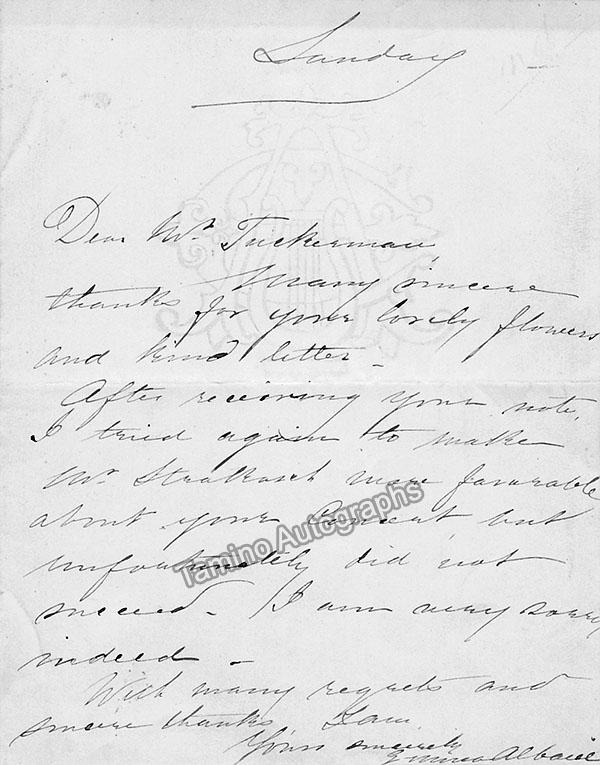 Sunday
Dear Mr. Tuckerman,
Many sincere
thanks for your lovely flowers
and kind letter -
After receiving your note,
I tried again to make
Mr. Strakosch more favorable
about your Concert, but
unfortunately did not
succeed - I am very sorry
indeed -
With many regrets and
sincere thanks, I am
Yours sincerely
Emma Albani
Tamino Autographs